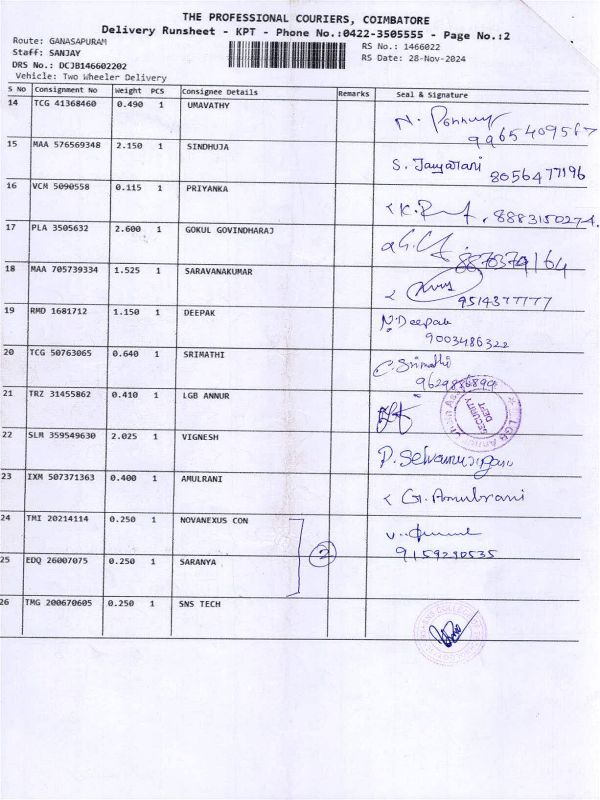 THE PROFESSIONAL COURIERS, COIMBATORE
Delivery Runsheet - KPT - Phone No.:0422-3505555 - Page No.:2
Route: GANASAPURAM
RS No.: 1466022
Staff: SANJAY
RS Date: 28-Nov-2024
DRS No.: DCJB146602202
Vehicle: Two Wheeler Delivery
S No Consignment No Weight PCS Consignee Details Remarks Seal & Signature
14 TCG 41368460 0.490 1 UMAVATHY
9965409567
15 MAA 576569348 2.150 1 SINDHUJA
S. Jayarani 8056477196
16 VCM 5090558 0.115 1 PRIYANKA
8883150274
17 PLA 3505632 2.600 1 GOKUL GOVINDHARAJ
18 MAA 705739334 1.525 1 SARAVANAKUMAR
9514377777
19 RMD 1681712 1.150 1 DEEPAK
N.Deepak
9003486322
20 TCG 50763065 0.640 1 SRIMATHI
C.Srimathi
9629836899
21 TRZ 31455862 0.410 1 LGB ANNUR
SECURITY DEPT
22 SLM 359549630 2.025 1 VIGNESH
23 IXM 507371363 0.400 1 AMULRANI
24 TMI 20214114 0.250 1 NOVANEXUS CON
2
9159290535
25 EDQ 26007075 0.250 1 SARANYA
26 TMG 200670605 0.250 1 SNS TECH